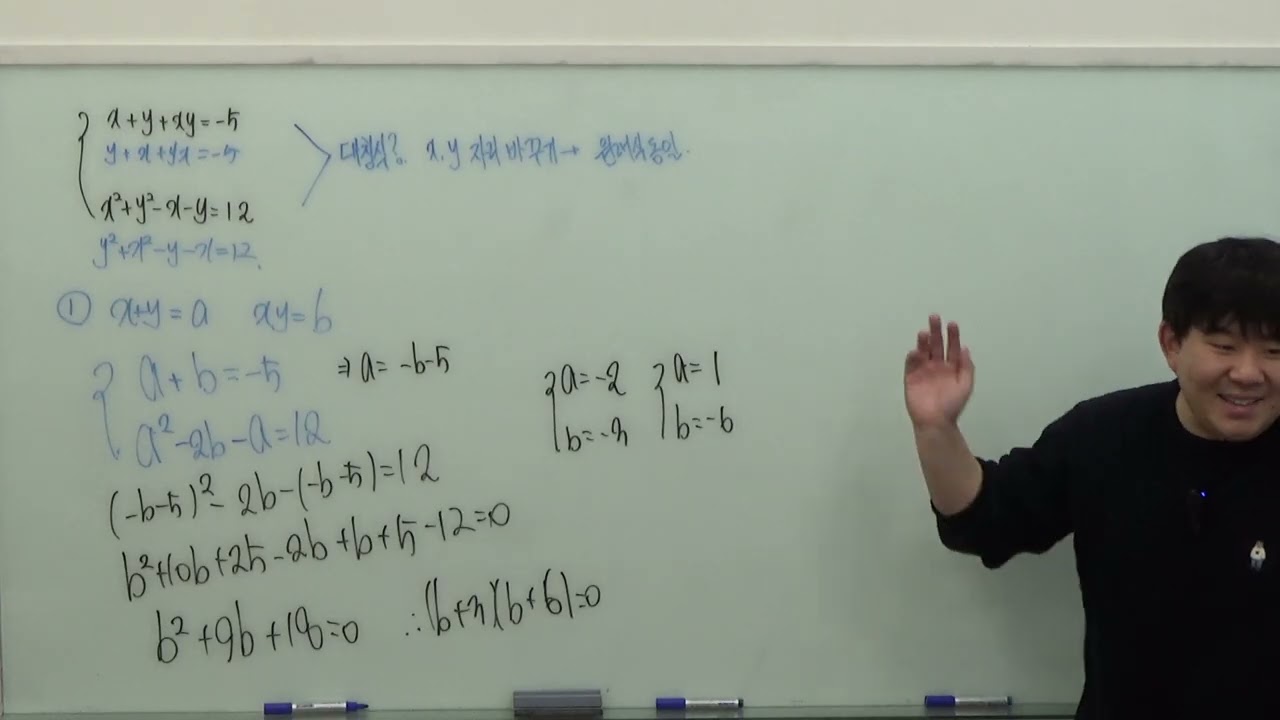 x+y+xy=-5
y+x+yx=-5
대칭식? x.y 자리 바꾸기→ 원래식 동일.
x²+y²-x-y=12
y²+x²-y-x=12.
① x+y=a xy=b
a+b=-5 ⇒ a=-b-5
a²-2b-a=12
a=-2 a=1
b=-3 b=-6
(-b-5)²-2b-(-b-5)=12
b²+10b+25-2b+b+5-12=0
b²+9b+18=0 ∴(b+3)(b+6)=0